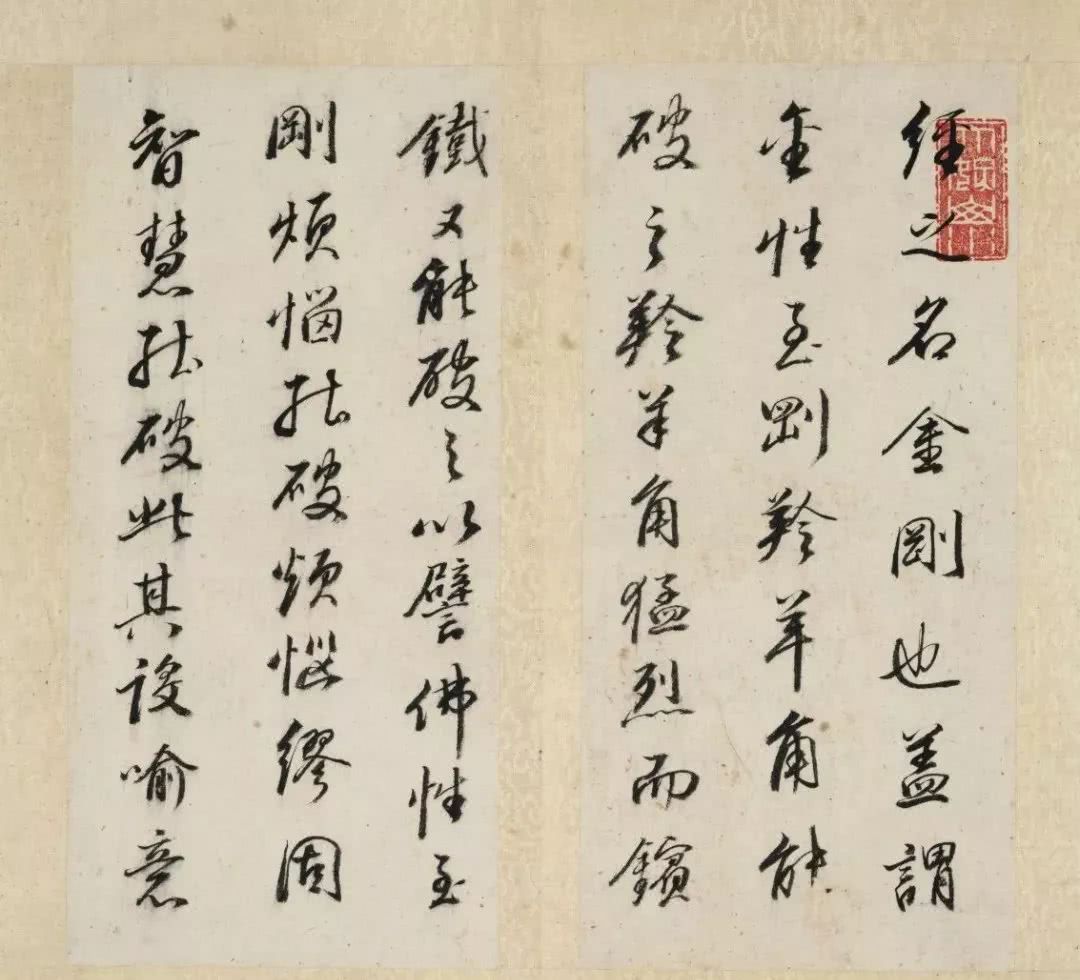 經之名金剛也盖謂
金性至剛羚羊角能
破之羚羊角猛烈而鑌
鐵又能破之以譬佛性至
剛煩惱能破煩惱繆固
智慧能破此其設喻意